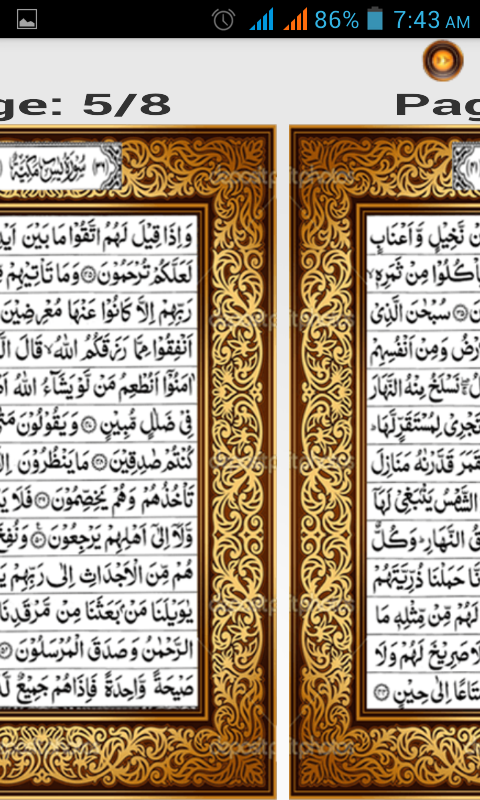 86%
7:43 AM
ge: 5/8
Pag
(٣٦) سُوْرَةُ يٰسٓ مَكِّيَّةٌ
وَاِذَا قِيْلَ لَهُمُ اتَّقُوْا مَا بَيْنَ
لَعَلَّكُمْ تُرْحَمُوْنَ ﴿٤٥﴾ وَمَا تَاْتِيْهِمْ
رَبِّهِمْ اِلَّا كَانُوْا عَنْهَا مُعْرِضِيْنَ
اَنْفِقُوْا مِمَّا رَزَقَكُمُ اللّٰهُ ۙ قَالَ
اٰمَنُوْٓا اَنُطْعِمُ مَنْ لَّوْ يَشَآءُ اللّٰهُ
فِيْ ضَلٰلٍ مُّبِيْنٍ ﴿٤٧﴾ وَيَقُوْلُوْنَ
كُنْتُمْ صٰدِقِيْنَ ﴿٤٨﴾ مَا يَنْظُرُوْنَ
تَاْخُذُهُمْ وَهُمْ يَخِصِّمُوْنَ ﴿٤٩﴾ فَلَا
وَّلَآ اِلٰٓى اَهْلِهِمْ يَرْجِعُوْنَ ﴿٥٠﴾
هُمْ مِّنَ الْاَجْدَاثِ اِلٰى رَبِّهِمْ
يٰوَيْلَنَا مَنْۢ بَعَثَنَا مِنْ مَّرْقَدِنَا
الرَّحْمٰنُ وَصَدَقَ الْمُرْسَلُوْنَ ﴿٥٢﴾
صَيْحَةً وَّاحِدَةً فَاِذَا هُمْ جَمِيْعٌ
نَّخِيْلٍ وَّاَعْنَابٍ
مِنْ ثَمَرِهٖ
سُبْحٰنَ الَّذِيْ
وَمِنْ اَنْفُسِهِمْ
نَسْلَخُ مِنْهُ النَّهَارَ
تَجْرِيْ لِمُسْتَقَرٍّ لَّهَا
قَدَّرْنٰهُ مَنَازِلَ
الشَّمْسُ يَنْۢبَغِيْ لَهَآ
النَّهَارِ ۚ وَكُلٌّ
حَمَلْنَا ذُرِّيَّتَهُمْ
لَهُمْ مِّنْ مِّثْلِهٖ مَا
صَرِيْخَ لَهُمْ وَلَا
اِلٰى حِيْنٍ ﴿٤٤﴾
depositphotos